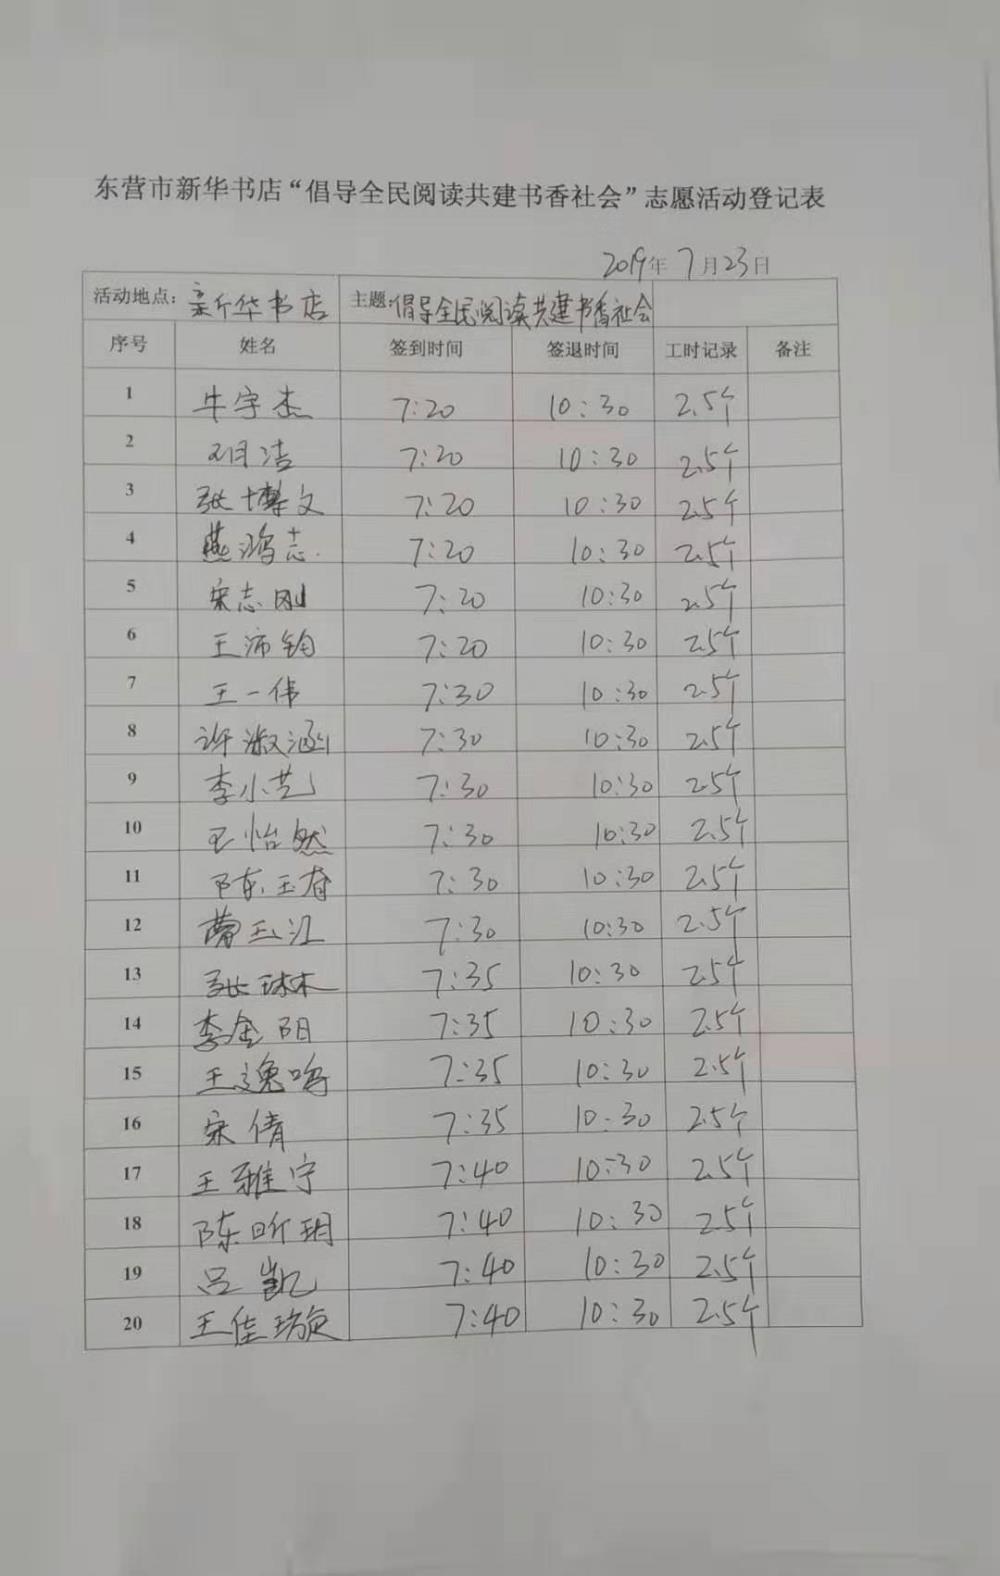 东营市新华书店“倡导全民阅读共建书香社会”志愿活动登记表
2019年 7月23日
活动地点：新华书店 主题：倡导全民阅读共建书香社会
序号 姓名 签到时间 签退时间 工时记录 备注
1 牛宇杰 7:20 10:30 2.5个
2 邓洁 7:20 10:30 2.5个
3 张博文 7:20 10:30 2.5个
4 燕鸿志 7:20 10:30 2.5个
5 宋志刚 7:20 10:30 2.5个
6 王沛钧 7:20 10:30 2.5个
7 王一伟 7:30 10:30 2.5个
8 许淑涵 7:30 10:30 2.5个
9 李小艺 7:30 10:30 2.5个
10 王怡然 7:30 10:30 2.5个
11 陈玉春 7:30 10:30 2.5个
12 曹玉江 7:30 10:30 2.5个
13 张琳 7:35 10:30 2.5个
14 李金阳 7:35 10:30 2.5个
15 王逸鸣 7:35 10:30 2.5个
16 宋倩 7:35 10:30 2.5个
17 王雅宁 7:40 10:30 2.5个
18 陈昕玥 7:40 10:30 2.5个
19 吕凯 7:40 10:30 2.5个
20 王佳璇 7:40 10:30 2.5个